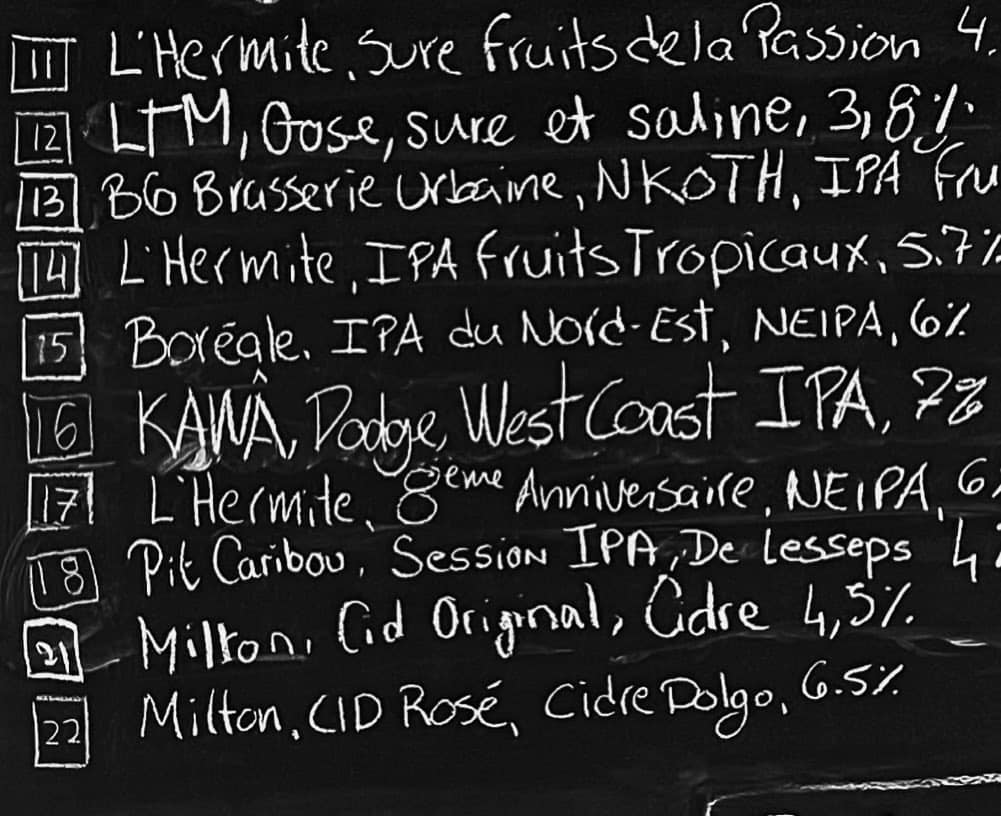 11 L'Hermite, Sure fruits de la Passion 4.
12 LTM, Gose, sure et saline, 3,8%
13 BG Brasserie Urbaine, NKOTH, IPA Fru
14 L'Hermite, IPA fruits Tropicaux, 5.7%
15 Boréale, IPA du Nord-Est, NEIPA, 6%
16 KAWÂ, Dodge, West Coast IPA, 7%
17 L'Hermite, 8ème Anniversaire, NEIPA, 6,
18 Pit Caribou, Session IPA, De Lesseps 4,
21 Milton, Cid Original, Cidre 4,5%
22 Milton, CID Rosé, Cidre Dolgo, 6.5%